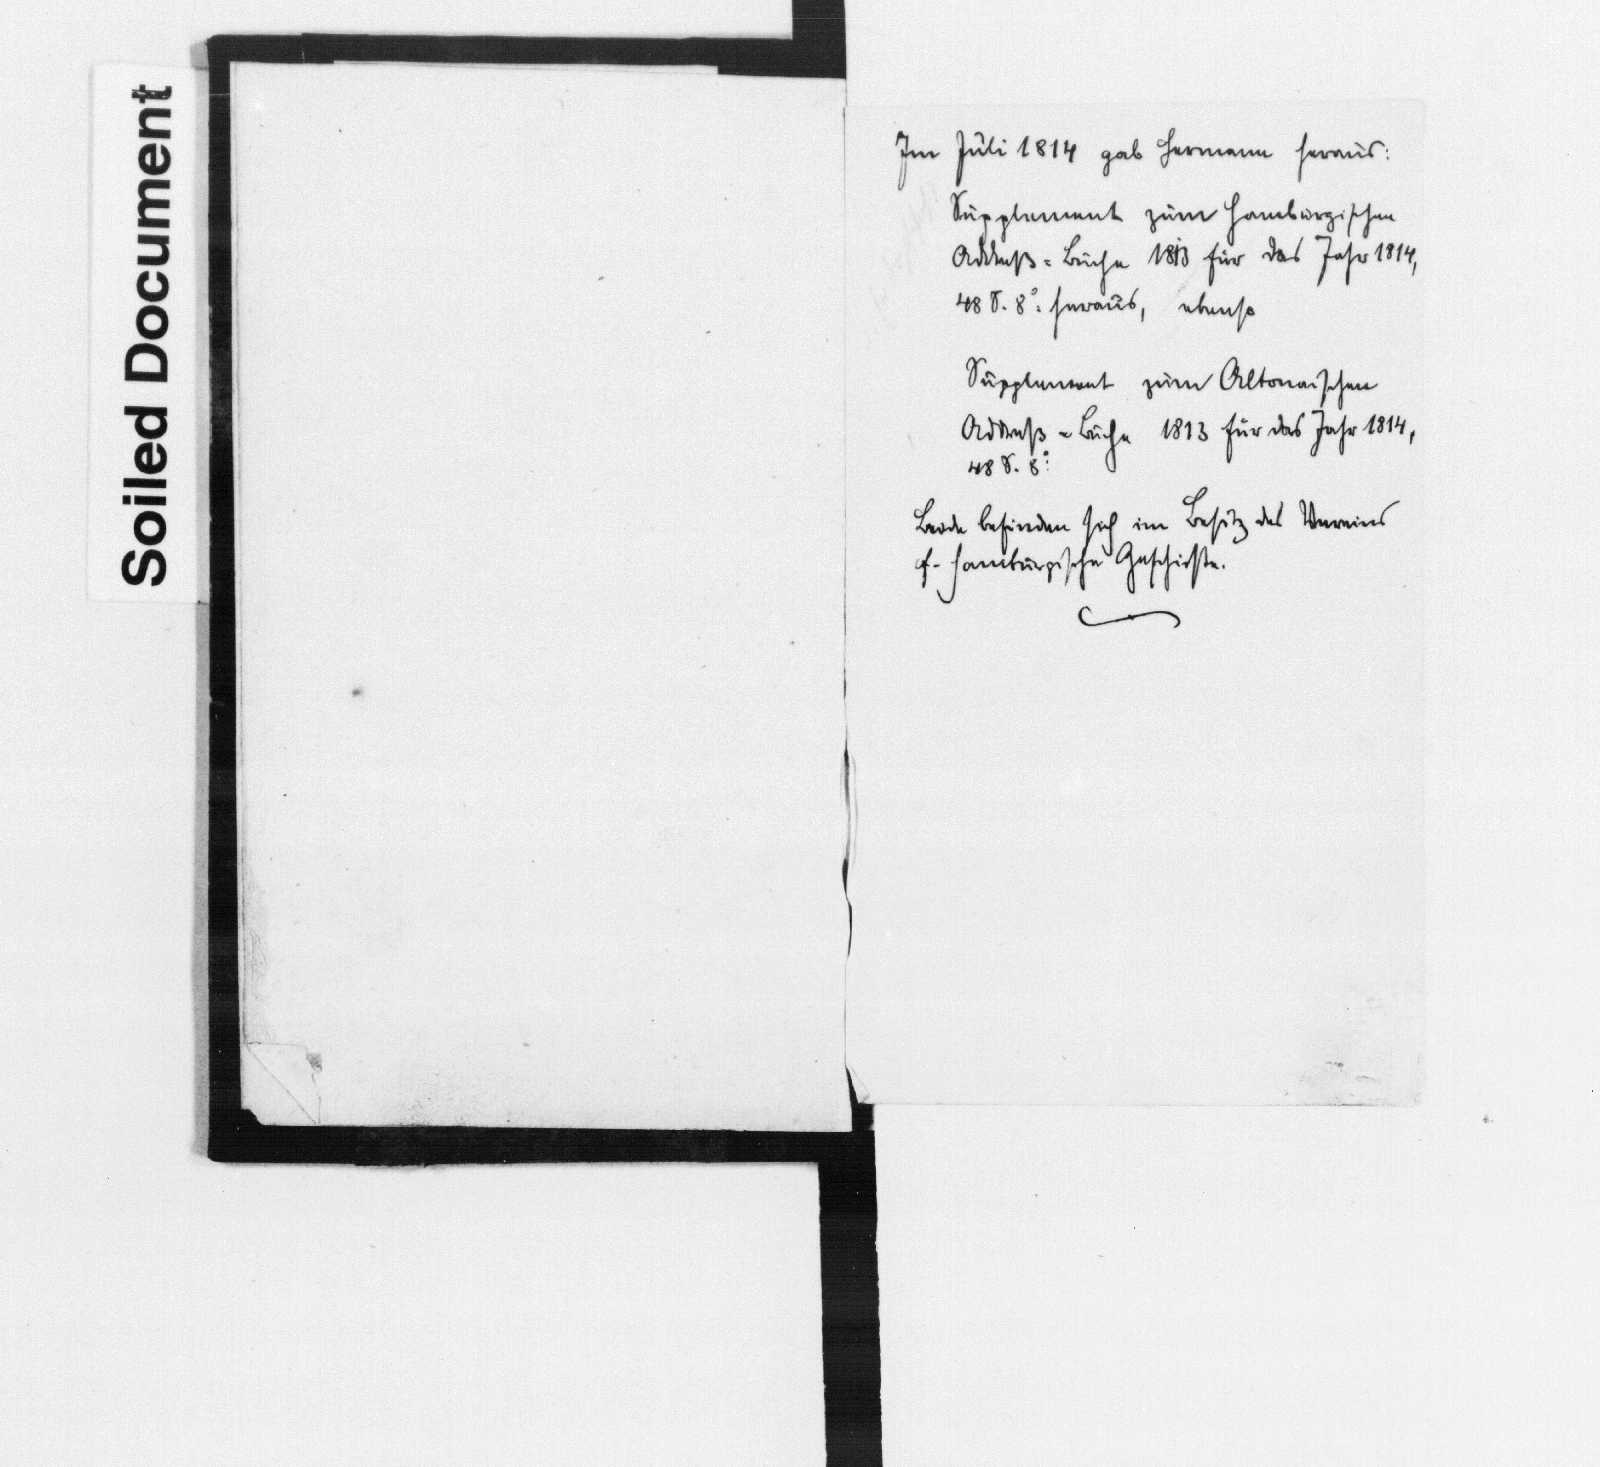 Soiled Document
Im Juli 1814 gab Hermann heraus:
Supplement zum Hamburgischen
Addreß=Buche 1813 für das Jahr 1814,
48 S. 8°. heraus, ebenso
Supplement zum Altonaischen
Addreß=Buche 1813 für das Jahr 1814,
48 S. 8°.
Beide befinden sich im Besitz des Vereins
f. Hamburgische Geschichte.